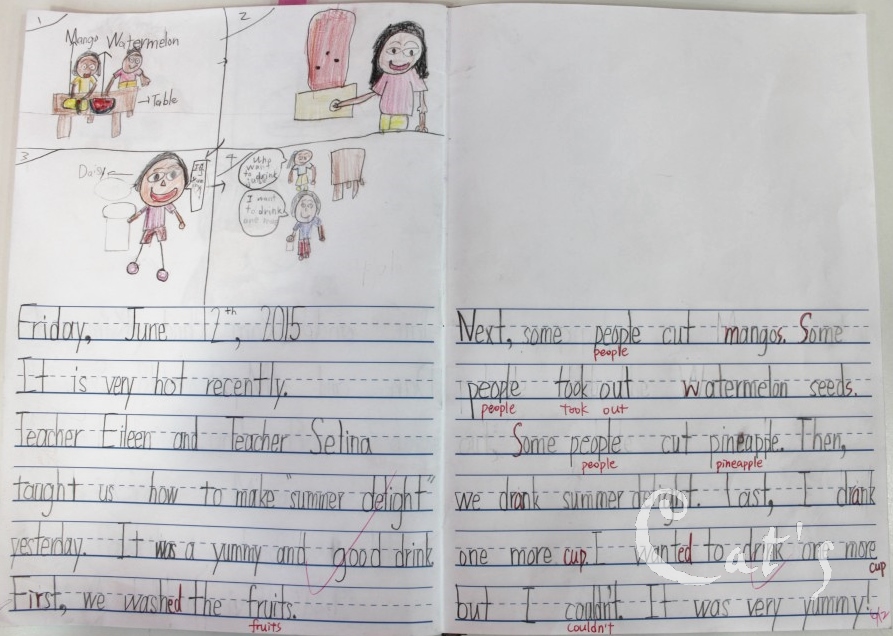 1
Mango Watermelon
Table
2
3
Daisy
4
Who want to drink
I want to drink
Friday, June 12th, 2015
It is very hot recently.
Teacher Eileen and Teacher Selina
taught us how to make "summer delight"
yesterday. It was a yummy and good drink
First, we washed the fruits.
fruits
Next, some people cut mangos. Some
people
people took out watermelon seeds.
people took out
Some people cut pineapple. Then,
people pineapple
we drank summer delight. Last, I drank
one more cup. I wanted to drink one more
cup
but I couldn't. It was very yummy!
couldn't
Cat's